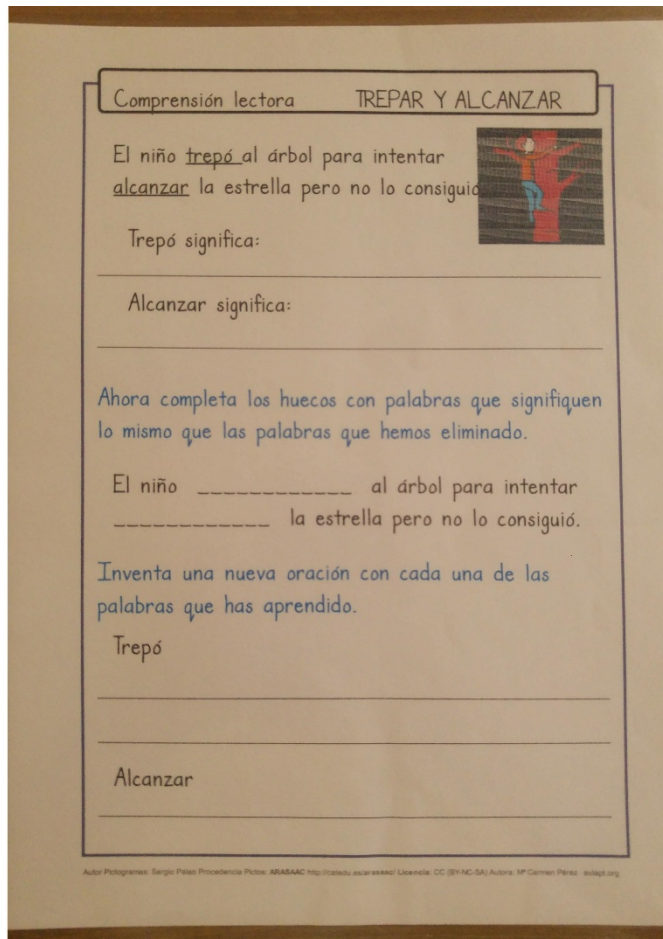 Comprensión lectora TREPAR Y ALCANZAR
El niño trepó al árbol para intentar
alcanzar la estrella pero no lo consiguió
Trepó significa:
Alcanzar significa:
Ahora completa los huecos con palabras que signifiquen
lo mismo que las palabras que hemos eliminado.
El niño ____________ al árbol para intentar
____________ la estrella pero no lo consiguió.
Inventa una nueva oración con cada una de las
palabras que has aprendido.
Trepó
Alcanzar
Autor Pictogramas: Sergio Palao Procedencia Pictos: ARASAAC http://catedu.es/arasaac/ Licencia: CC (BY-NC-SA) Autora: Mª Carmen Pérez aulapt.org